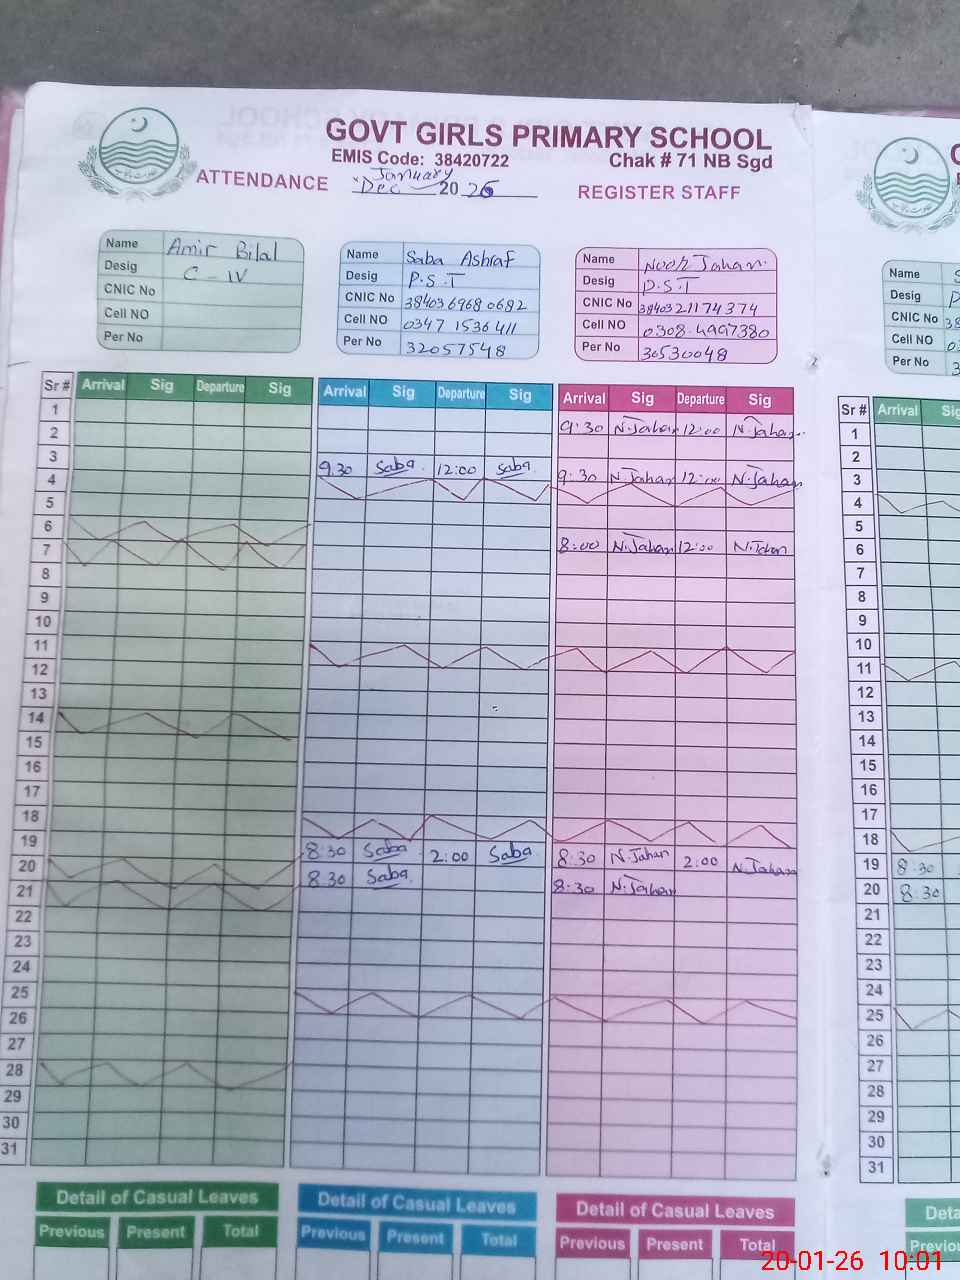 GOVT GIRLS PRIMARY SCHOOL
EMIS Code: 38420722 Chak # 71 NB Sgd
ATTENDANCE January Dec 2026 REGISTER STAFF
Name Amir Bilal
Desig C-IV
CNIC No
Cell NO
Per No
Name Saba Ashraf
Desig P.S.T
CNIC No 3840369680682
Cell NO 0347 1536411
Per No 32057548
Name Noor Jahan.
Desig P.S.T
CNIC No 3840321174374
Cell NO 0308-4997380
Per No 30530048
Name
Desig
CNIC No 38
Cell NO 03
Per No 3
Sr # Arrival Sig Departure Sig Arrival Sig Departure Sig Arrival Sig Departure Sig Sr # Arrival Sig
1 9:30 N.Jahan 12:00 N.Jahan 1
2 2
3 9.30 Saba 12:00 Saba 9:30 N.Jahan 12:00 N.Jahan 3
4 4
5 5
6 8:00 N.Jahan 12:00 N.Jahan 6
7 7
8 8
9 9
10 10
11 11
12 12
13 13
14 14
15 15
16 16
17 17
18 18
19 8:30 Saba 2:00 Saba 8:30 N.Jahan 2:00 N.Jahan 19 8:30
20 8.30 Saba 8:30 N.Jahan 20 8:30
21 21
22 22
23 23
24 24
25 25
26 26
27 27
28 28
29 29
30 30
31 31
Detail of Casual Leaves Detail of Casual Leaves Detail of Casual Leaves
Previous Present Total Previous Present Total Previous Present Total
20-01-26 10:01